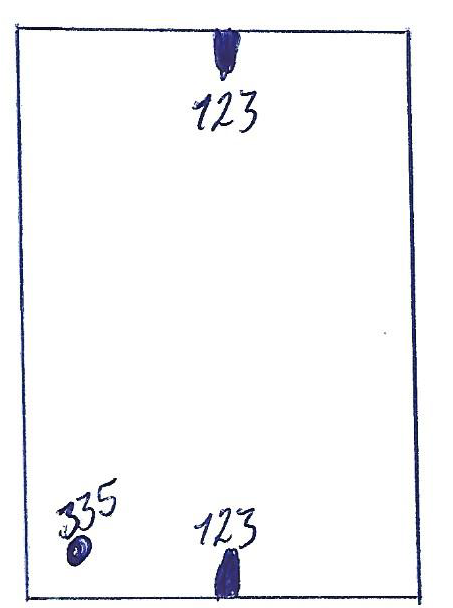 123
335
123